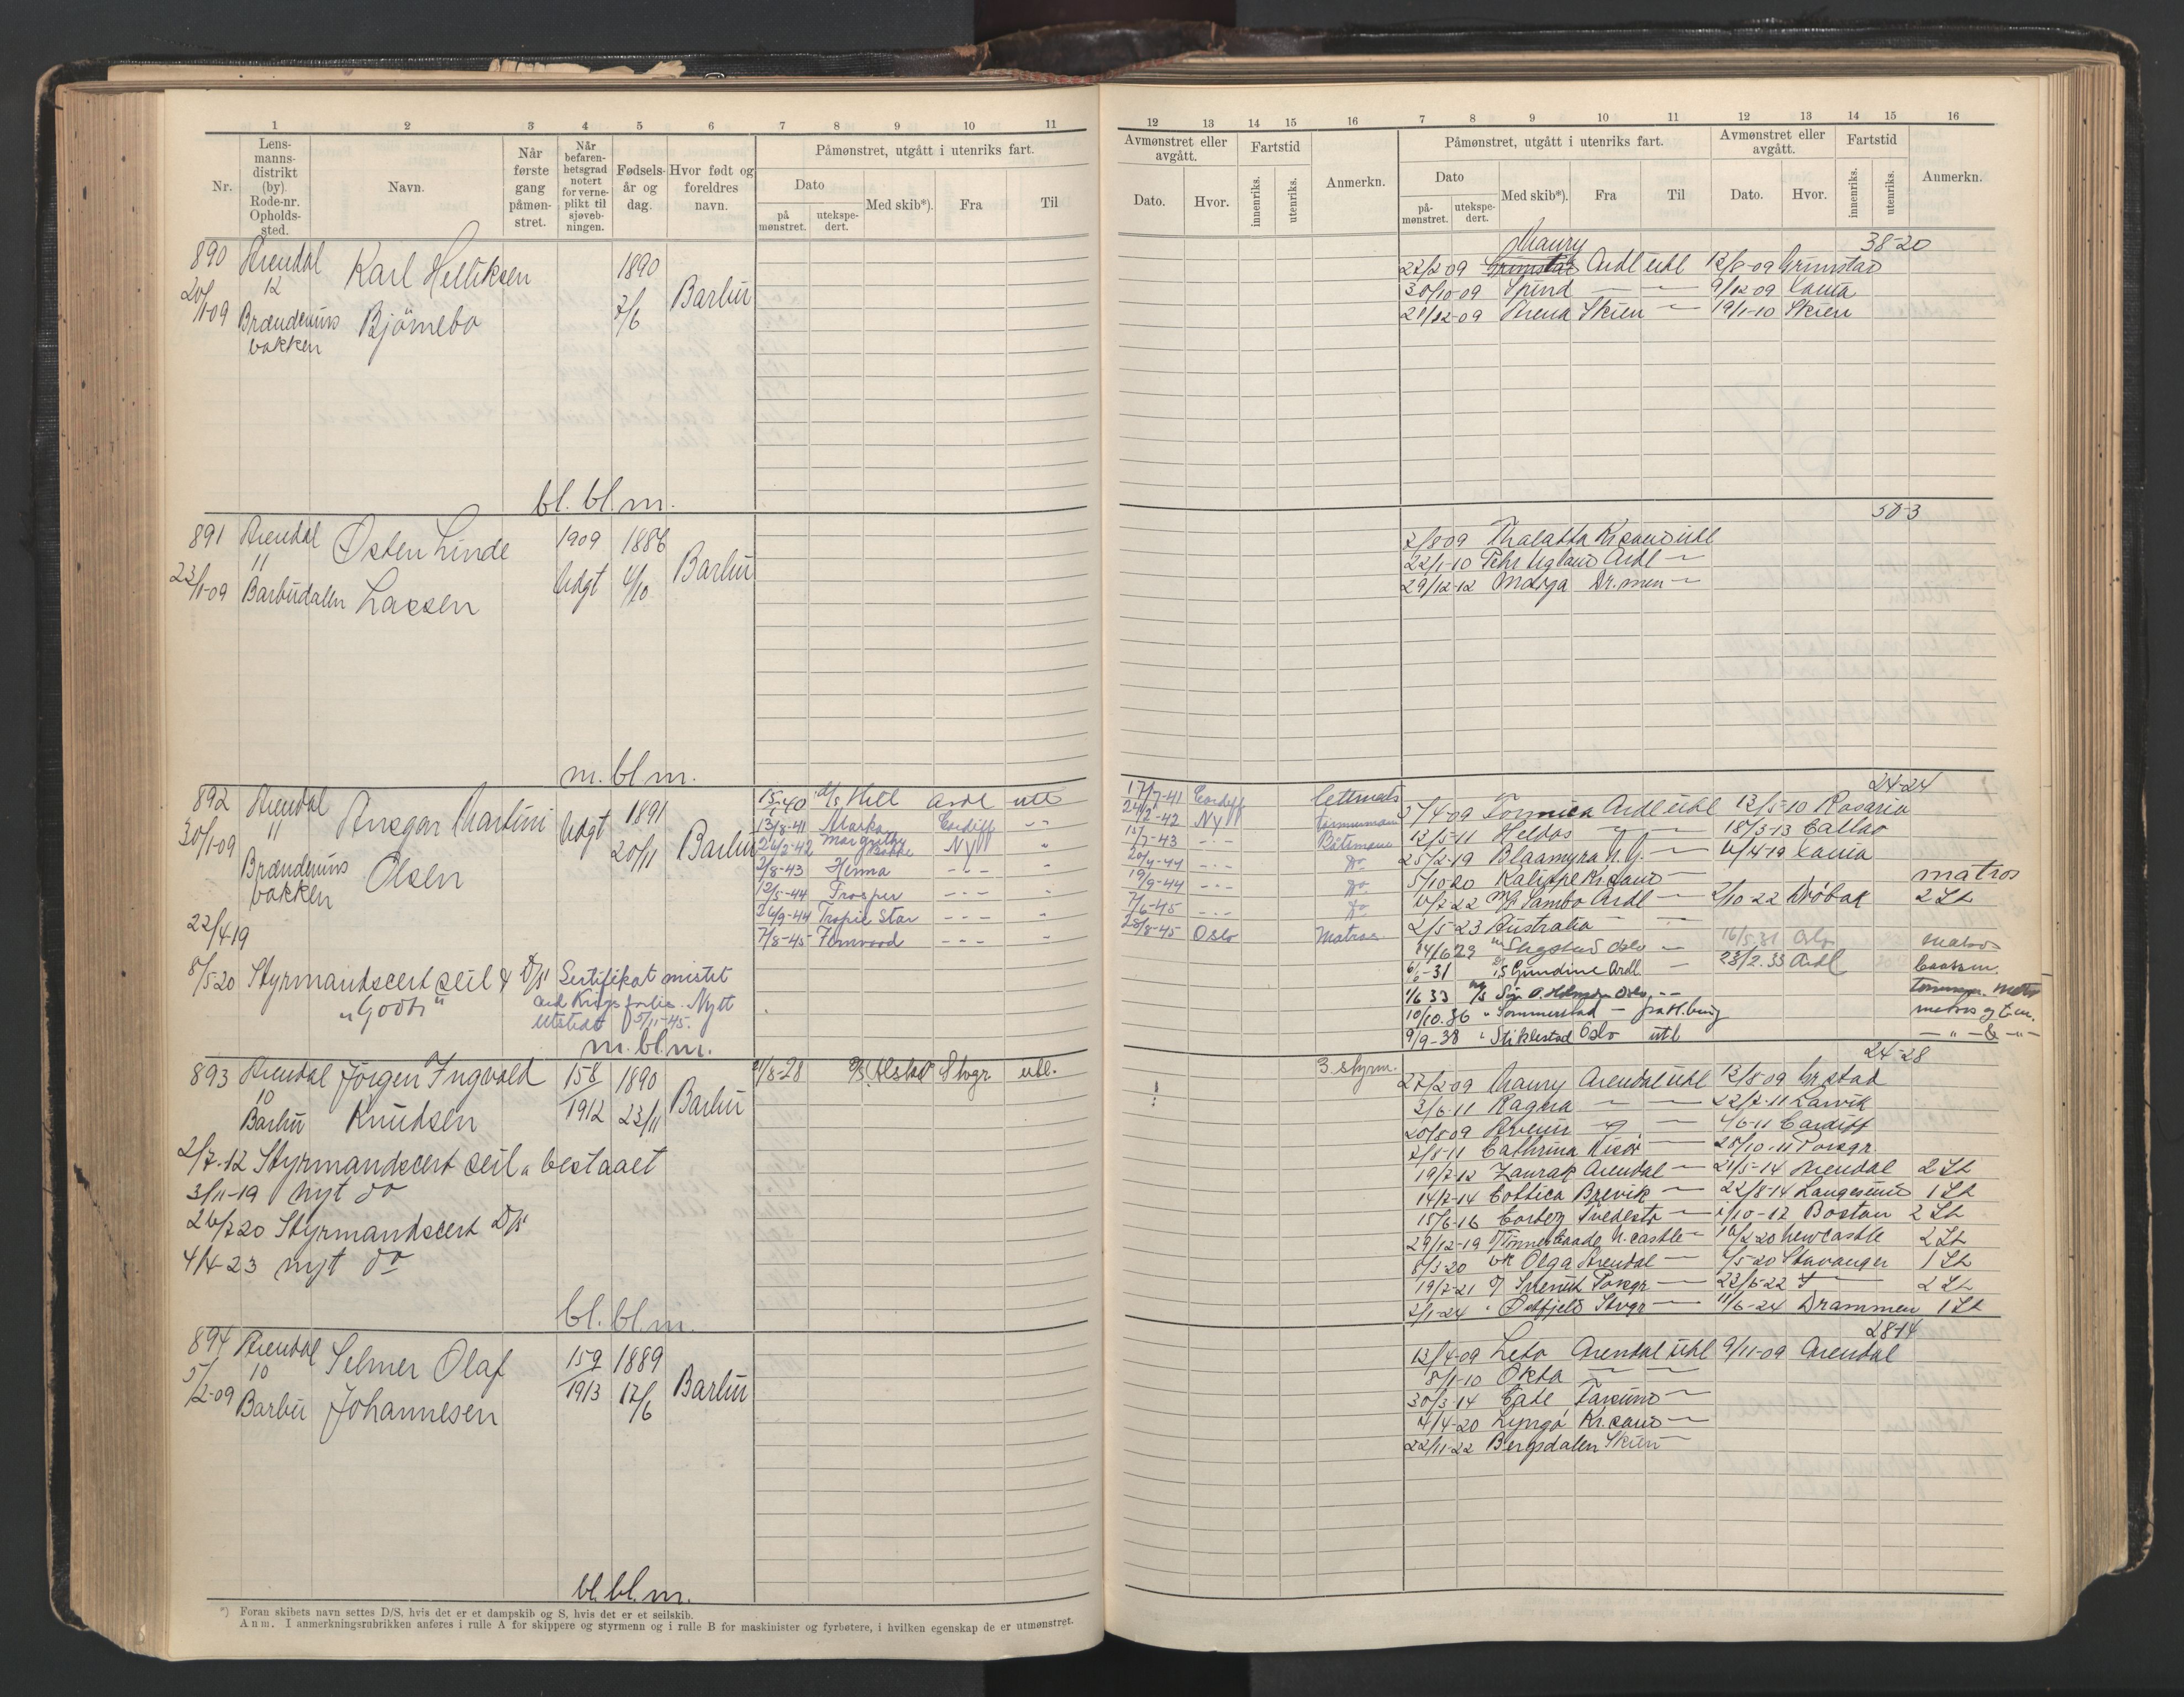 1 2 3 4 5 6 7 8 9 10 11
Nr.
Lens-
manns-
distrikt
(by)
Rode-nr.
Opholds-
sted.
Navn.
Når
første
gang
påmøn-
stret.
Når
befaren-
hetsgrad
notert
for verne-
plikt til
sjøveb-
ningen.
Fødsels-
år og
dag.
Hvor født og
foreldres
navn.
Påmønstret, utgått i utenriks fart.
Dato
på
mønstret.
utekspe-
dert.
Med skib*).
Fra
Til
890 Arendal Karl Helliksen 1890
12
20/1-09 Brændevins Bjørnebo 7/6 Barbu
bakken
bl. bl. m.
891 Arendal Osten Linde 1909 1886
11
23/1-09 Barbudalen Lassen Udgt 4/10 Barbu
m. bl. m.
892 Arendal Ansgar Martini Udgt 1891 Hill Ardl utl
30/1-09 11 Olsen 20/11 Barbu
13/8-41 Marka Cardiff
Brændevins
bakken
24/2-42 Margrethe Bakke NY
2/8-43 Henna
12/5-44 Prosper
26/9-44 Tropic Star
7/8-45 Fernwood
22/4 19
8/5 20 Styrmandscert seil & D/S
"Godt"
Sertifikat mistet
ved Krigsforlis. Nytt
utstedt 5/11-45.
m. bl. m.
893 Arendal Jørgen Ingvald 158 1890 Alstad Stvgr utl.
10
Barbu Knudsen 1912 23/11 Barbu
2/7-12 Styrmandscert seil bestaaet
3/11-19 nyt do
26/7 20 Styrmandscert D/S
4/4-23 nyt do
bl. bl. m.
894 Arendal Selmer Olaf 159 1889
5/2-09 10
Barbu Johannesen 1913 17/6 Barbu
bl. bl. m.
*) Foran skibets navn settes D/S, hvis det er et dampskib og S, hvis det er et seilskib.
Anm. I anmerkningsrubrikken anføres i rulle A for skippere og styrmenn og i rulle B for maskinister og fyrbøtere, i hvilken egenskap de er utmønstret.
12 13 14 15 16 7 8 9 10 11 12 13 14 15 16
Avmønstret eller
avgått.
Dato.
Hvor.
Fartstid
innenriks.
utenriks.
Anmerkn.
Påmønstret, utgått i utenriks fart.
Dato
på-
mønstret.
utekspe-
dert.
Med skib*).
Fra
Til
Avmønstret eller
avgått.
Dato.
Hvor.
Fartstid
innenriks.
utenriks.
Anmerkn.
38-20
Maury
22/2 09 Grimstad Ardl utl 12/8-09 Grimstad
30/10-09 Spind 9/12 09
21/12-09 Arena Skien 19/1-10 Skien
50-3
2/8 09 Thalatta Krsand utl
22/1-10 Fehr Ugland Ardl
29/12-12 Marga Dr.men
24-24
17/7-41 Cardiff Lettmats
24/2-42 NY Tømmermann
15/7-43 Båtsmann
20/4-44 do
19/9-44 do
7/6-45 do
28/8-45 Oslo Matros
5/4-09 Formica Ardl utl 12/5-10 Rosario
12/5-11 Heldos 18/3-13 Callao
25/2-19 Blaamyra 4/4-19
5/10-20 Kalippe Krsand matros
Sambo Ardl 2/10-22 Drøbak 2 St
2/5-23 Australia
14/6 29 Oslo 16/5 31 Oslo matros
Gundine Ardl 23/2.33 Ardl Baatsm.
1/6 33 Oslo
10/10.36 Sommerstad fra H.burg matros og t.m.
9/9-38 Stiklestad Oslo utl
24-28
3 styrm.
22/2 09 Maury Arendal utl 12/8 09 Gr.stad
3/6-11 Ragna 22/7-11 Larvik
20/8 09 4/6-11 Cardiff
2/8-11 Cathrina Risør 28/10-11 Porsgr.
19/2-12 Zaurak Arendal 21/5-14 Arendal 2 St
14/7-14 Cottica Brevik 22/8-14 Langesund 1 St
15/6-16 Tvedestr 1/10-17 Boston 2 St
29/12-19 N.castle 16/2-20 Newcastle 2 St
8/3-20 Olga Arendal 5-20 Stavanger 1 St
19/7-21 Porsgr 22/6-22 2 St
2/1-24 Østfjeld Stvgr 11/6-24 Drammen 1 St
28-14
13/4-09 Leto Arendal utl 9/11-09 Arendal
8/1-10 Okta
30/3-14 Farsund
4/4-20 Lyngø Kr.sand
22/11-22 Bergsdalen Skien